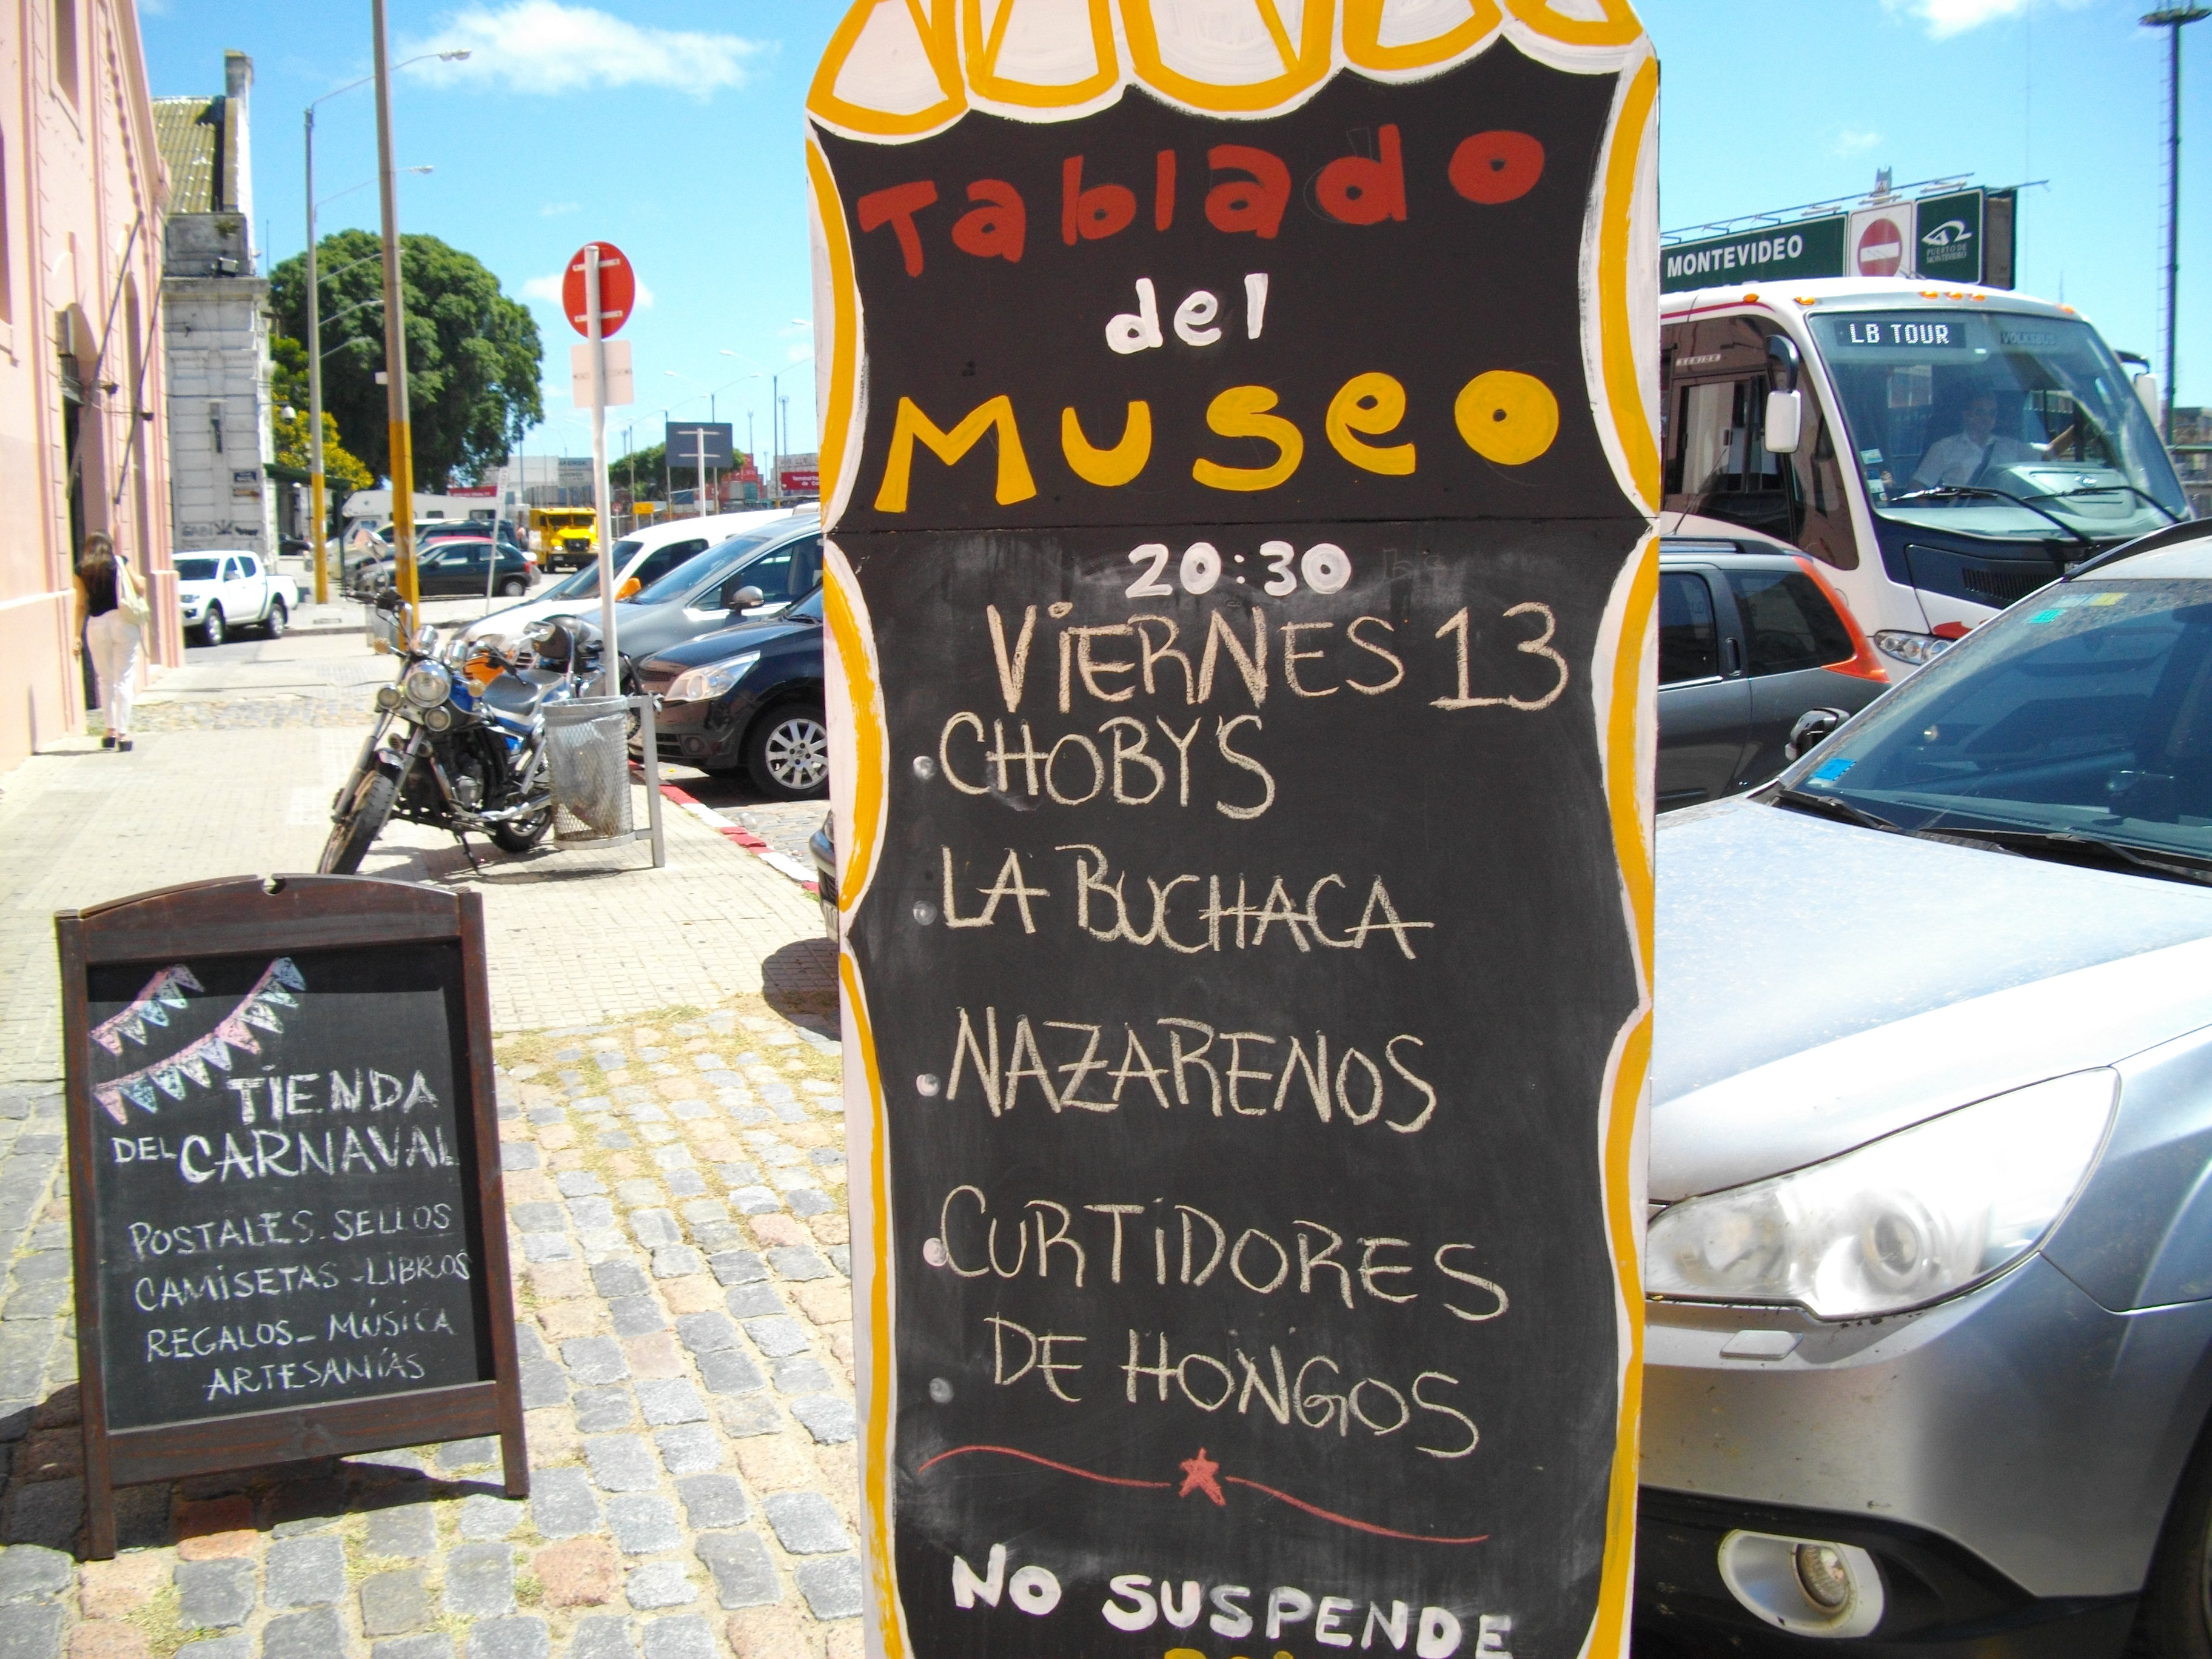 Tablado
del
Museo
20:30
VIERNES 13
CHOBY'S
LA BUCHACA
NAZARENOS
CURTIDORES
DE HONGOS
NO SUSPENDE
TIENDA
DEL CARNAVAL
POSTALES - SELLOS
CAMISETAS - LIBROS
REGALOS - MÚSICA
ARTESANÍAS
MONTEVIDEO
PUERTO DE
MONTEVIDEO
LB TOUR
VOLKSBUS
SENIOR